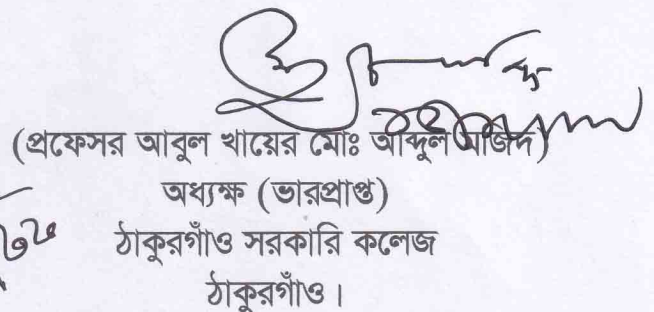 (প্রফেসর আবুল খায়ের মোঃ আব্দুল মজিদ)
অধ্যক্ষ (ভারপ্রাপ্ত)
ঠাকুরগাঁও সরকারি কলেজ
ঠাকুরগাঁও।